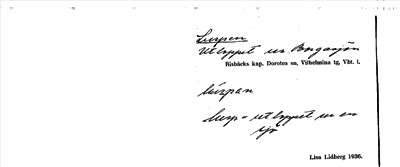 Luspen
Utloppet ur Borgasjön
Risbäcks kap. Dorotea sn, Vilhelmina tg, Vbt. l.
luspan
lusp = utloppet ur en
sjö
Lisa Lidberg 1936.